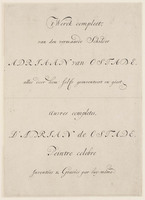 Werck compleets
van den vermaarde Schilder
ADRIAAN van OSTADE,
alles door hem self geinventeert en geëst
Œuvre complette
D'ADRIAN de OSTADE,
Peintre célébre
Inventée & Gravée par luy même